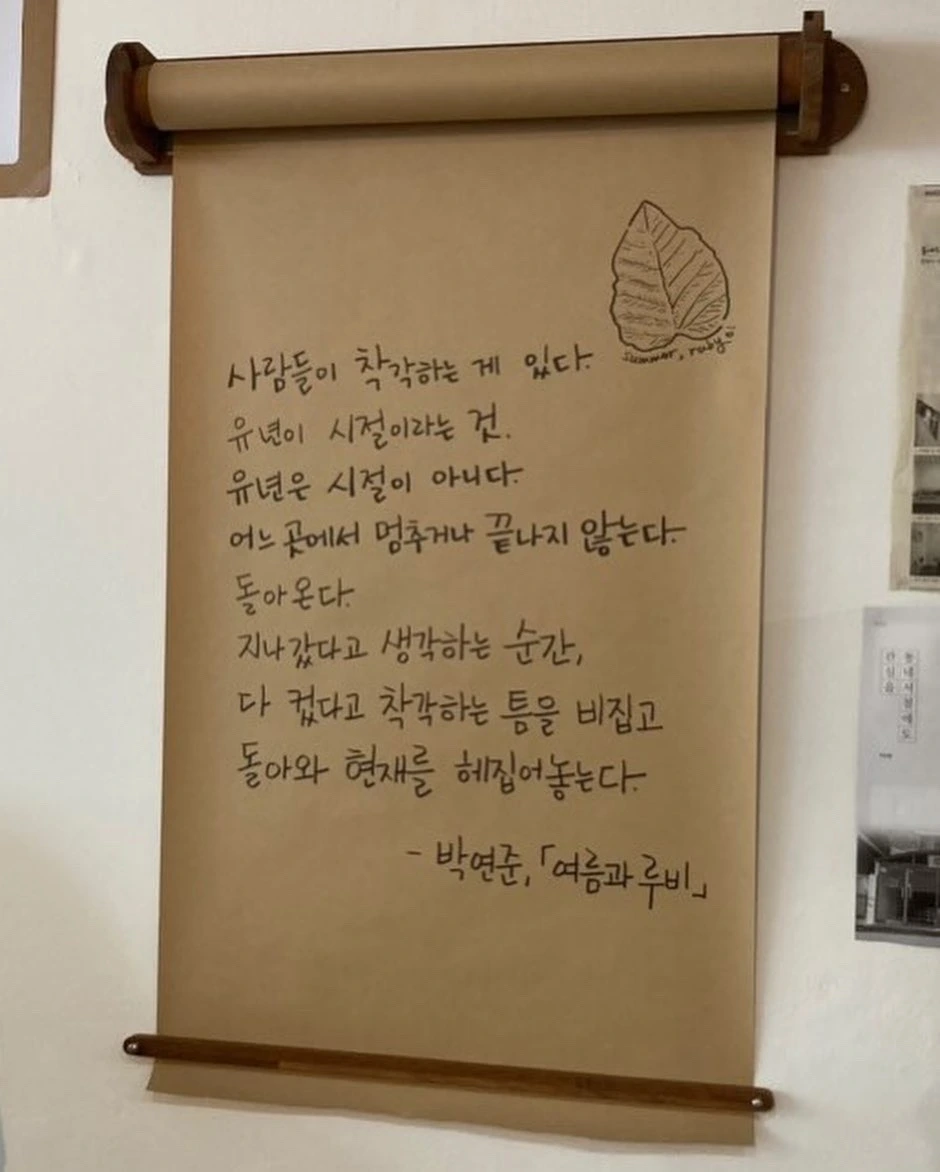 summer, ruby
사람들이 착각하는 게 있다.
유년이 시절이라는 것.
유년은 시절이 아니다.
어느 곳에서 멈추거나 끝나지 않는다.
돌아온다.
지나갔다고 생각하는 순간,
다 컸다고 착각하는 틈을 비집고
돌아와 현재를 헤집어놓는다.
- 박연준, 「여름과 루비」
동네서점에도
관심을